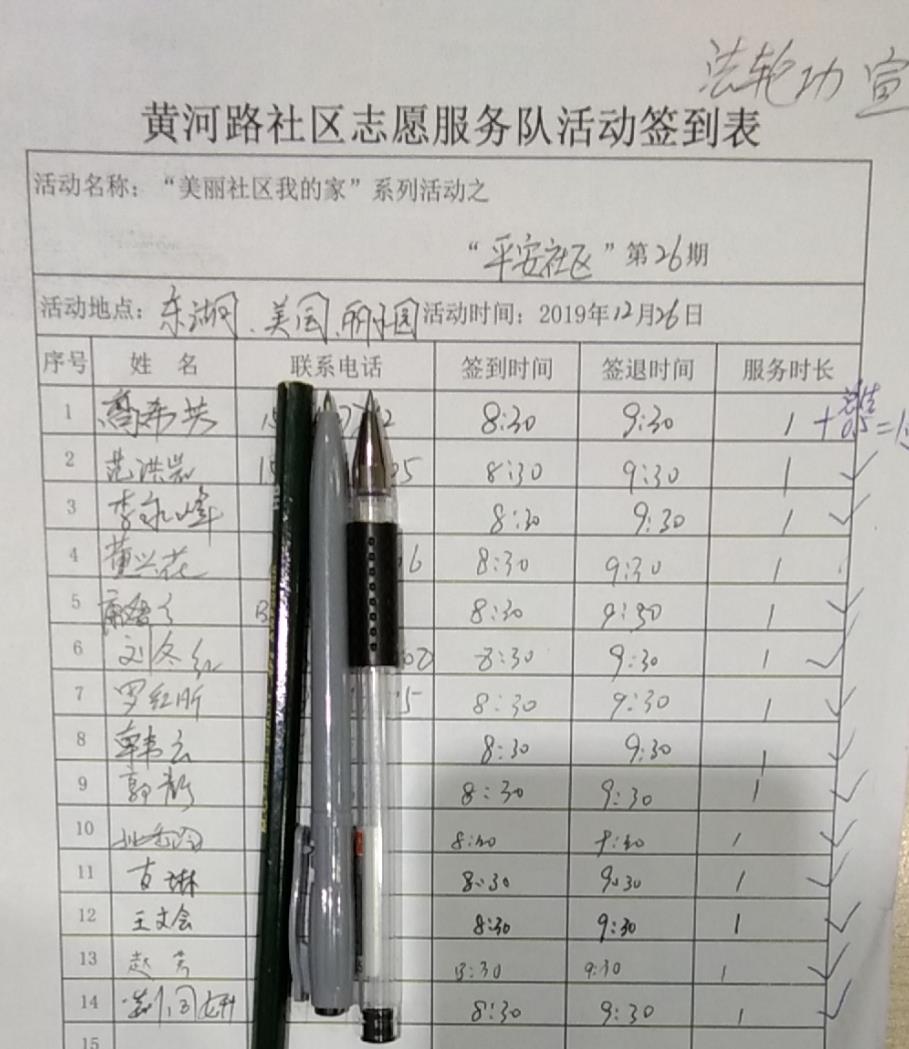 法轮功 宣
黄河路社区志愿服务队活动签到表
活动名称：“美丽社区我的家”系列活动之
“平安社区”第26期
活动地点：东湖、美国、丽子园 活动时间：2019年12月26日
序号 姓 名 联系电话 签到时间 签退时间 服务时长
1 高希芳 8:30 9:30 1 + 总结 0.5 = 1
2 范洪岩 8:30 9:30 1 ✓
3 李永峰 8:30 9:30 1 ✓
4 董兴花 8:30 9:30 1
5 8:30 9:30 1 ✓
6 刘冬红 8:30 9:30 1 ✓
7 罗红所 8:30 9:30 1 ✓
8 韩云 8:30 9:30 1 ✓
9 郭 8:30 9:30 1 ✓
10 1 ✓
11 袁琳 8:30 9:30 1 ✓
12 王文会 8:30 9:30 1 ✓
13 赵芳 8:30 9:30 1 ✓
14 8:30 9:30 1 ✓
15